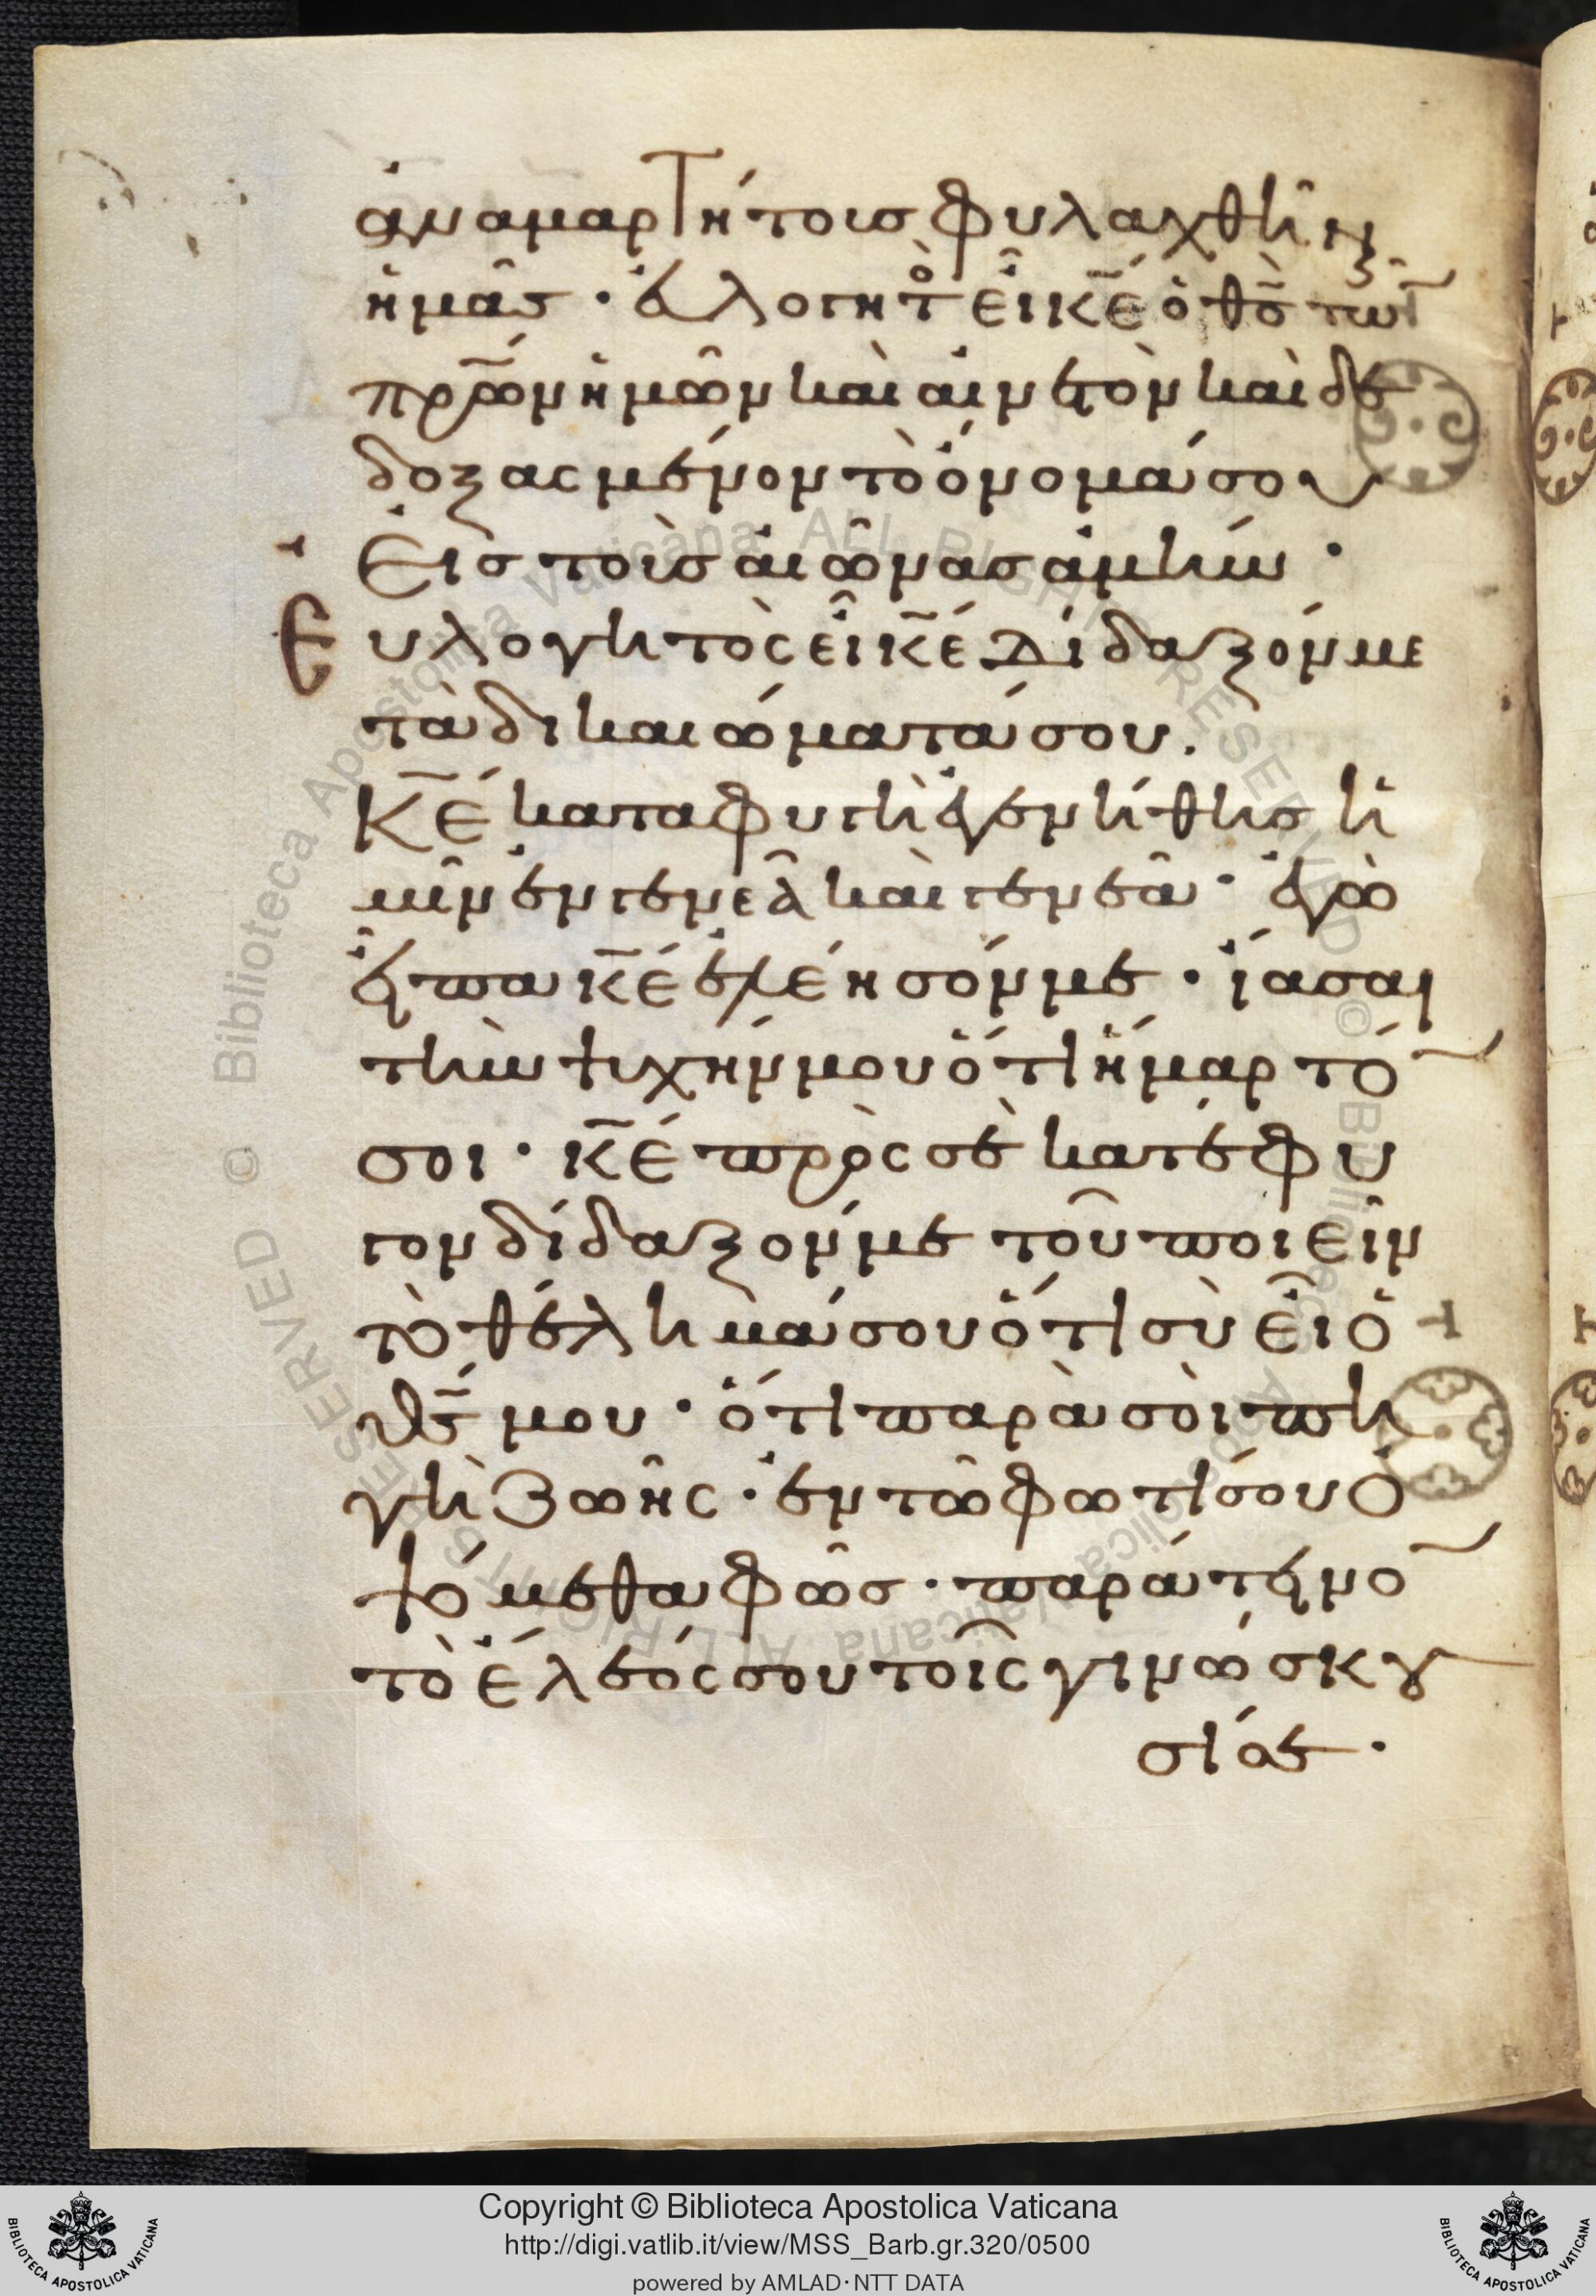 ἀναμαρτήτους φυλαχθῆν
ἡμᾶς · εὐλογητὸ εἶ κ̅ε̅ ὁ θ̅ς̅ τῶν
π̅ρ̅ω̅ν ἡμῶν καὶ αἰνετὸν καὶ δε
δοξασμένον τὸ ὄνομά σου
Εἰς τοὺς αἰῶνας ἀμήν ·
Ευλογητὸς εἶ κ̅ε̅ Δίδαξόν με
τὰ δικαιώματά σου.
Κ̅ε̅ καταφυγὴ ἐγενήθης ἡ
μῖν ἐν γενεᾶ καὶ γενεᾶ · ἐγὼ
εἶπα κ̅ε̅ ἐλέησόν με · ἴασαι
τὴν ψυχήν μου ὅτι ἥμαρτό
σοι · κ̅ε̅ πρὸς σὲ κατέφυ
γον δίδαξόν με τοῦ ποιεῖν
τὸ θέλημά σου ὅτι σὺ εἶ ὁ
θ̅ς̅ μου · ὅτι παρὰ σοὶ πη
γὴ ζωῆς · ἐν τῶ φωτί σου ὀ
ψόμεθα φῶς · παράτεινο
τὸ ἔλεός σου τοῖς γινώσκου
σί σε ·
Copyright © Biblioteca Apostolica Vaticana
http://digi.vatlib.it/view/MSS_Barb.gr.320/0500
powered by AMLAD·NTT DATA
BIBLIOTECA APOSTOLICA VATICANA
BIBLIOTECA APOSTOLICA VATICANA